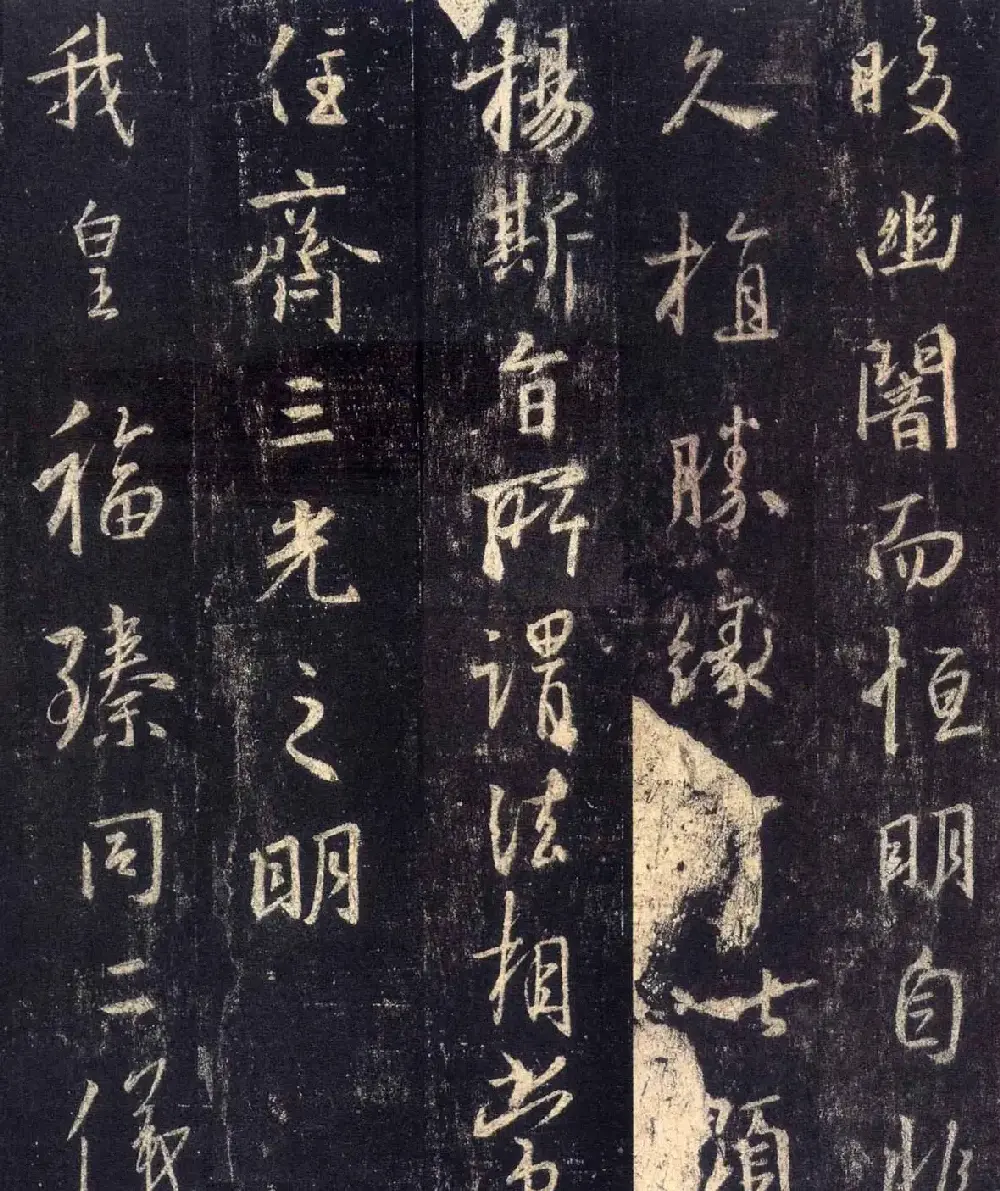 皎幽闇而恒明自非
久植勝緣以顯
揚斯旨所謂法相常
住齊三光之明
我皇福臻同二儀